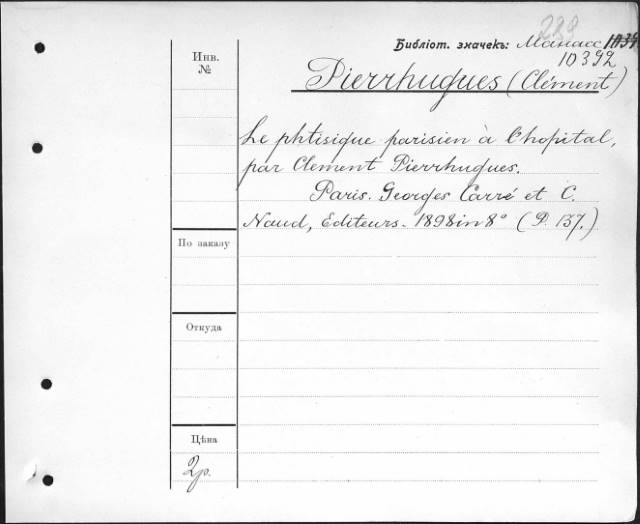 289
Библіот. значекъ: Манасс
10392
Инв.
№
Pierrhugues (Clément)
Le phtisique parisien à l'hopital,
par Clement Pierrhugues.
Paris. Georges Carré et C.
Naud, Editeurs. 1898 in 8° (P. 137.)
По заказу
Откуда
Цѣна
2р.